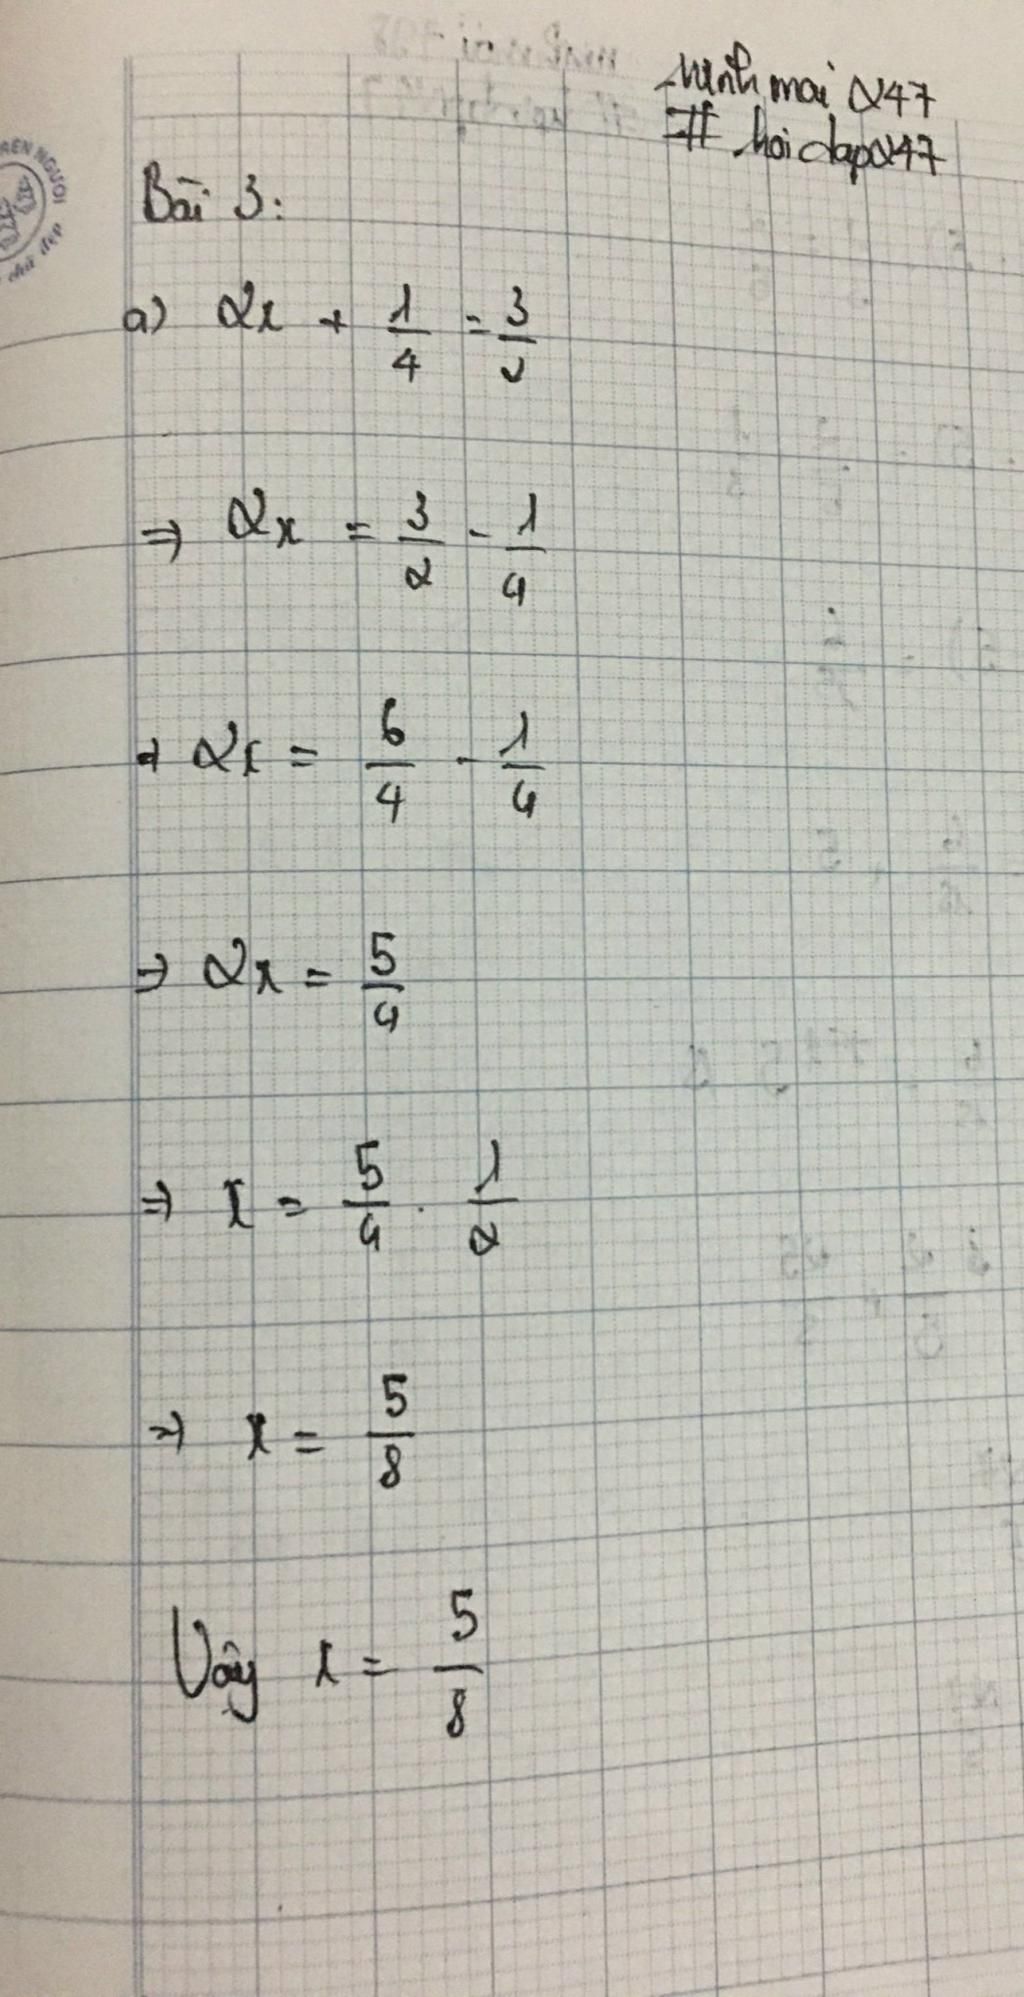 minhmai247
# hoidap247
Bài 3:
a) 2x + 1/4 = 3/2
=> 2x = 3/2 - 1/4
=> 2x = 6/4 - 1/4
=> 2x = 5/4
=> x = 5/4 . 1/2
=> x = 5/8
Vậy x = 5/8